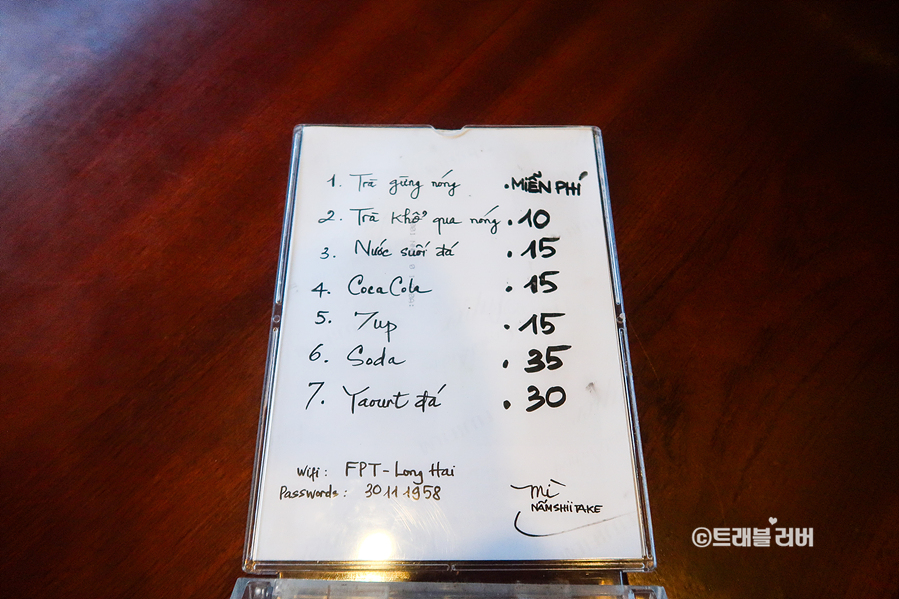 1. Trà gừng nóng . MIỄN PHÍ
2. Trà khổ qua nóng . 10
3. Nước suối đá . 15
4. CocaCola . 15
5. 7up . 15
6. Soda . 35
7. Yaourt đá . 30
Wifi : FPT - Long Hai
Passwords : 30111958
Mì
NẤM SHIITAKE
©트래블러버